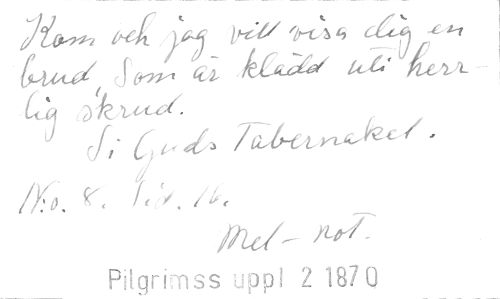 Kom och jag vill visa dig en
brud som är klädd uti herr-
lig skrud.
Si Guds Tabernakel.
No. 8. Sid. 16.
Mel - not.
Pilgrimss uppl 2 1870